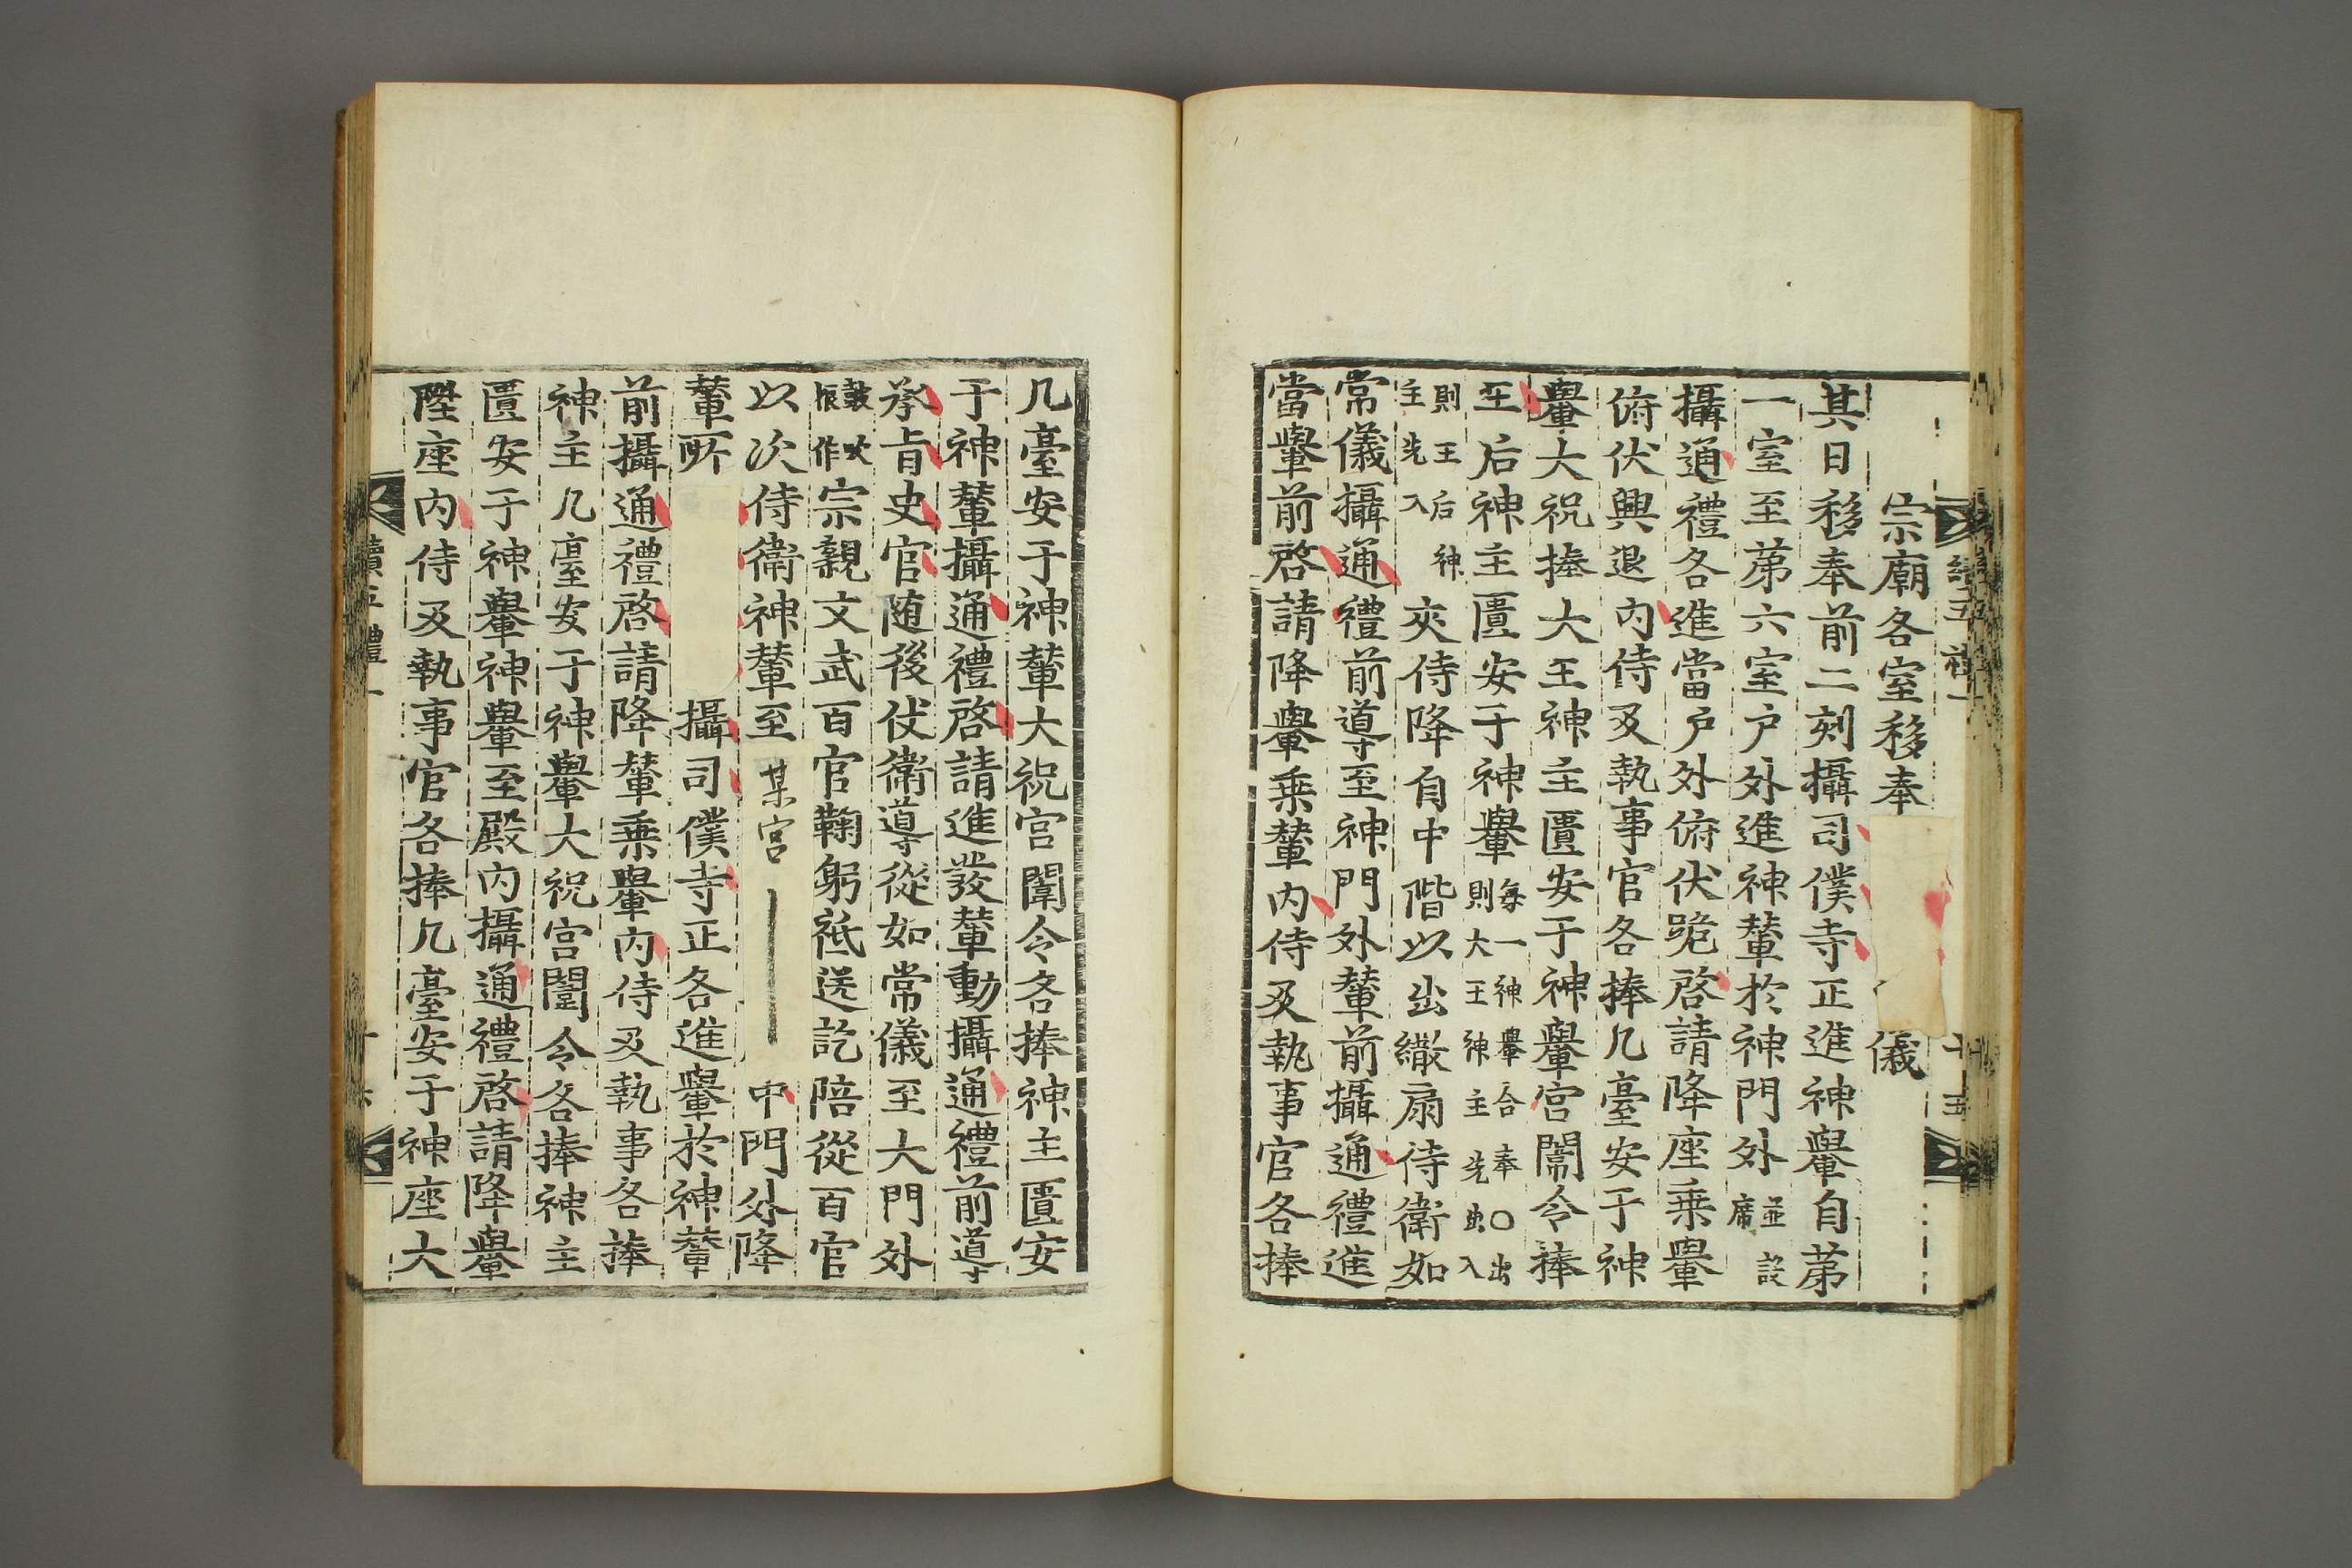 宗廟各室移奉儀
其日移奉前二刻攝司僕寺正進神轝自第
一室至第六室户外進神輦於神門外並設席
攝通禮各進當户外俯伏跪啓請降座乗轝
俯伏興退内侍及執事官各捧几臺安于神
轝大祝捧大王神主匱安于神轝宫闈令捧
王后神主匱安于神轝每一神轝合奉○出則大王神主先出入
則王后神主先入夾侍降自中階以出繖扇侍衛如
常儀攝通禮前導至神門外輦前攝通禮進
當轝前啓請降轝乗輦内侍及執事官各捧
几臺安于神輦大祝宫闈令各捧神主匱安
于神輦攝通禮啓請進發輦動攝通禮前導
承旨史官随後仗衛導從如常儀至大門外
鼓吹振作宗親文武百官鞠躬祗送訖陪從百官
以次侍衛神輦至某宫中門外降
輦所攝司僕寺正各進轝於神輦
前攝通禮啓請降輦乗轝内侍及執事各捧
神主几臺安于神轝大祝宫闈令各捧神主
匱安于神轝神轝至殿内攝通禮啓請降轝
陞座内侍及執事官各捧几臺安于神座大